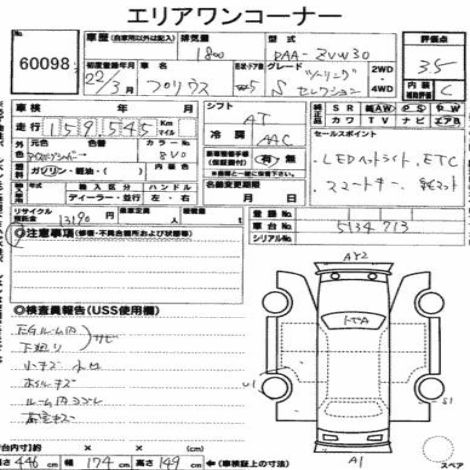 エリアワンコーナー
60098
車歴 (自家用以外は記入) 排気量 1800 型式 DAA-ZVW30 評価点 3.5
初度登録年月 22/3月 車名 プリウス 形状・ドア数 5 グレード S "ツーリング" セレクション 2WD 4WD 内装 C
車検 年 月
走行 159,545 Km マイル
シフト AT
冷房 AAC
純正品 SR AW PS PW
カワ TV ナビ エアB
外色 元色 色替 カラーNo.
8V0 内装色
セールスポイント
・LEDヘッドライト ・ETC
・スマートキー ・純マット
(有)・無
ガソリン・軽油・( )
名義変更期限 月 日
年式 輸入区分 ハンドル
ディーラー・並行 左・右
リサイクル預託金 13190円 乗車定員 人 積載量 t
登録No.
車台No. 5134713
シリアルNo.
◎注意事項 (修復・不具合箇所および状態等)
◎検査員報告 (USS使用欄)
下廻り サビ
小キズ
ホイルキズ
AY2
U1
S1
A1
車台寸法(約) × ×
長さ 446 cm 幅 174 cm 高さ 149 cm ←(車検証上の寸法)
スペア